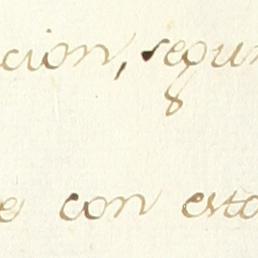 cion, segun
e con esta